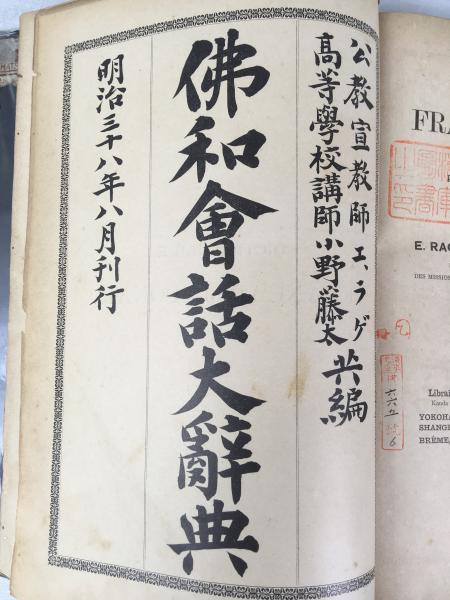 公教宣教師エ、ラゲ
高等學校講師小野藤太 共編
佛和會話大辭典
明治三十八年八月刊行
FRA
E. RAG
DES MISSION
Librai
Kanda
YOKOHA
SHANG
BRÊME,
六六五
6